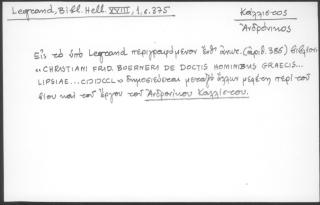 Legrand, Bibl. Hell. XVIII, 1, σ. 375
Κάλλιστος
Ἀνδρόνικος
Εἰς τὸ ὑπὸ Legrand περιγραφόμενον ἔνθ' ἀνωτ. (ἀριθ. 385) βιβλίον
«CHRISTIANI FRID. BOERNERI DE DOCTIS HOMINIBUS GRAECIS...
LIPSIAE... CIƆIƆCCL» δημοσιεύεται μεταξὺ ἄλλων μελέτη περὶ τοῦ
βίου καὶ τοῦ ἔργου τοῦ Ἀνδρονίκου Καλλίστου.